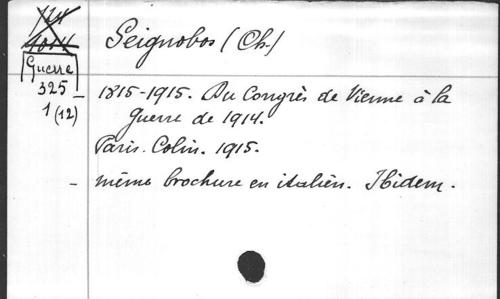 Seignobos (Ch.)
Guerre
325
1 (12)
— 1815-1915. Du Congrès de Vienne à la
Guerre de 1914.
Paris. Colin. 1915.
— même brochure en italien. Ibidem.